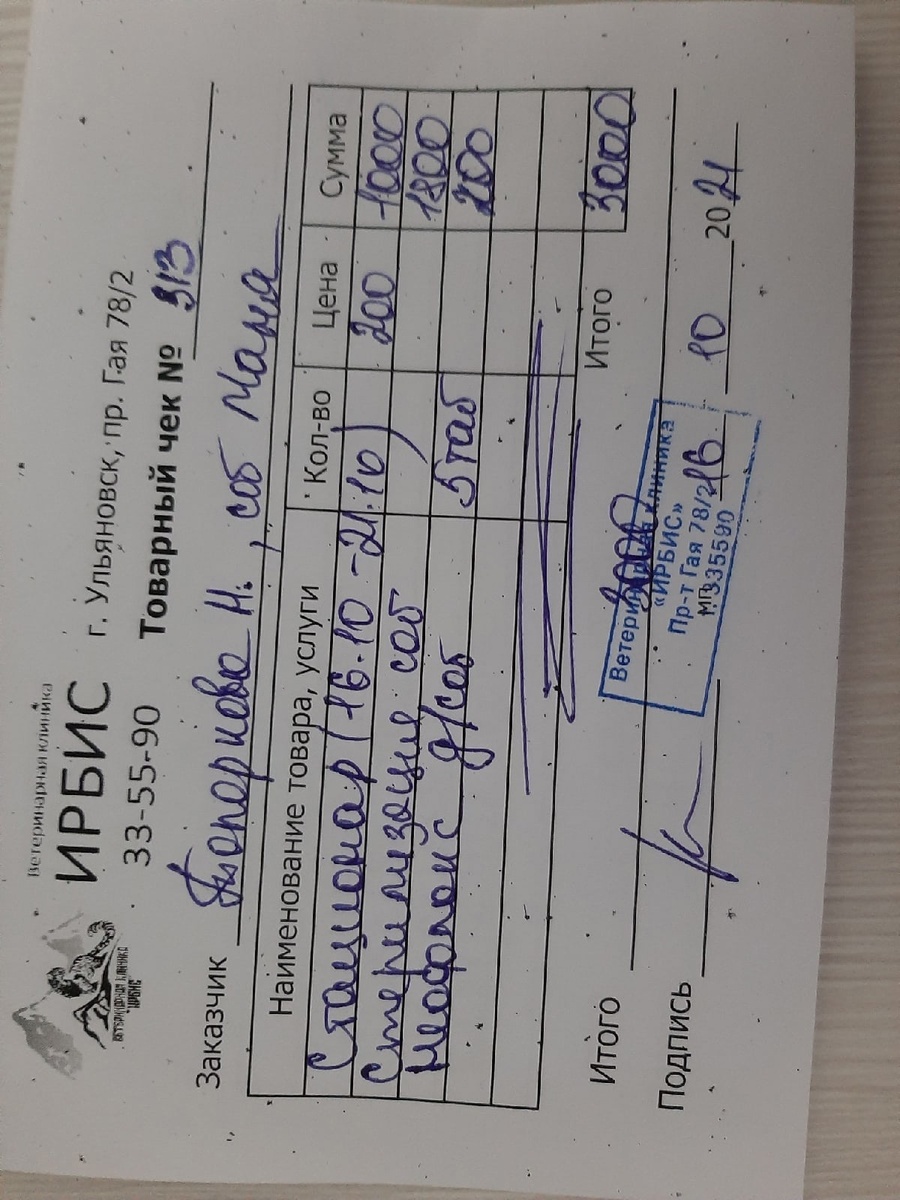 Ветеринарная клиника
ИРБИС г. Ульяновск, пр. Гая 78/2
33-55-90 Товарный чек № 313
ВЕТЕРИНАРНАЯ КЛИНИКА
ИРБИС
Заказчик Топоркова Н., соб Маня
Наименование товара, услуги Кол-во Цена Сумма
Стационар (16.10 - 21.10) 200 1000
Стерилизация соб 1800
д/соб 5 таб 200
Итого 3000
Итого 3000
Ветеринарная клиника
«ИРБИС»
Пр-т Гая 78/2
335590
Подпись МП 10 2021